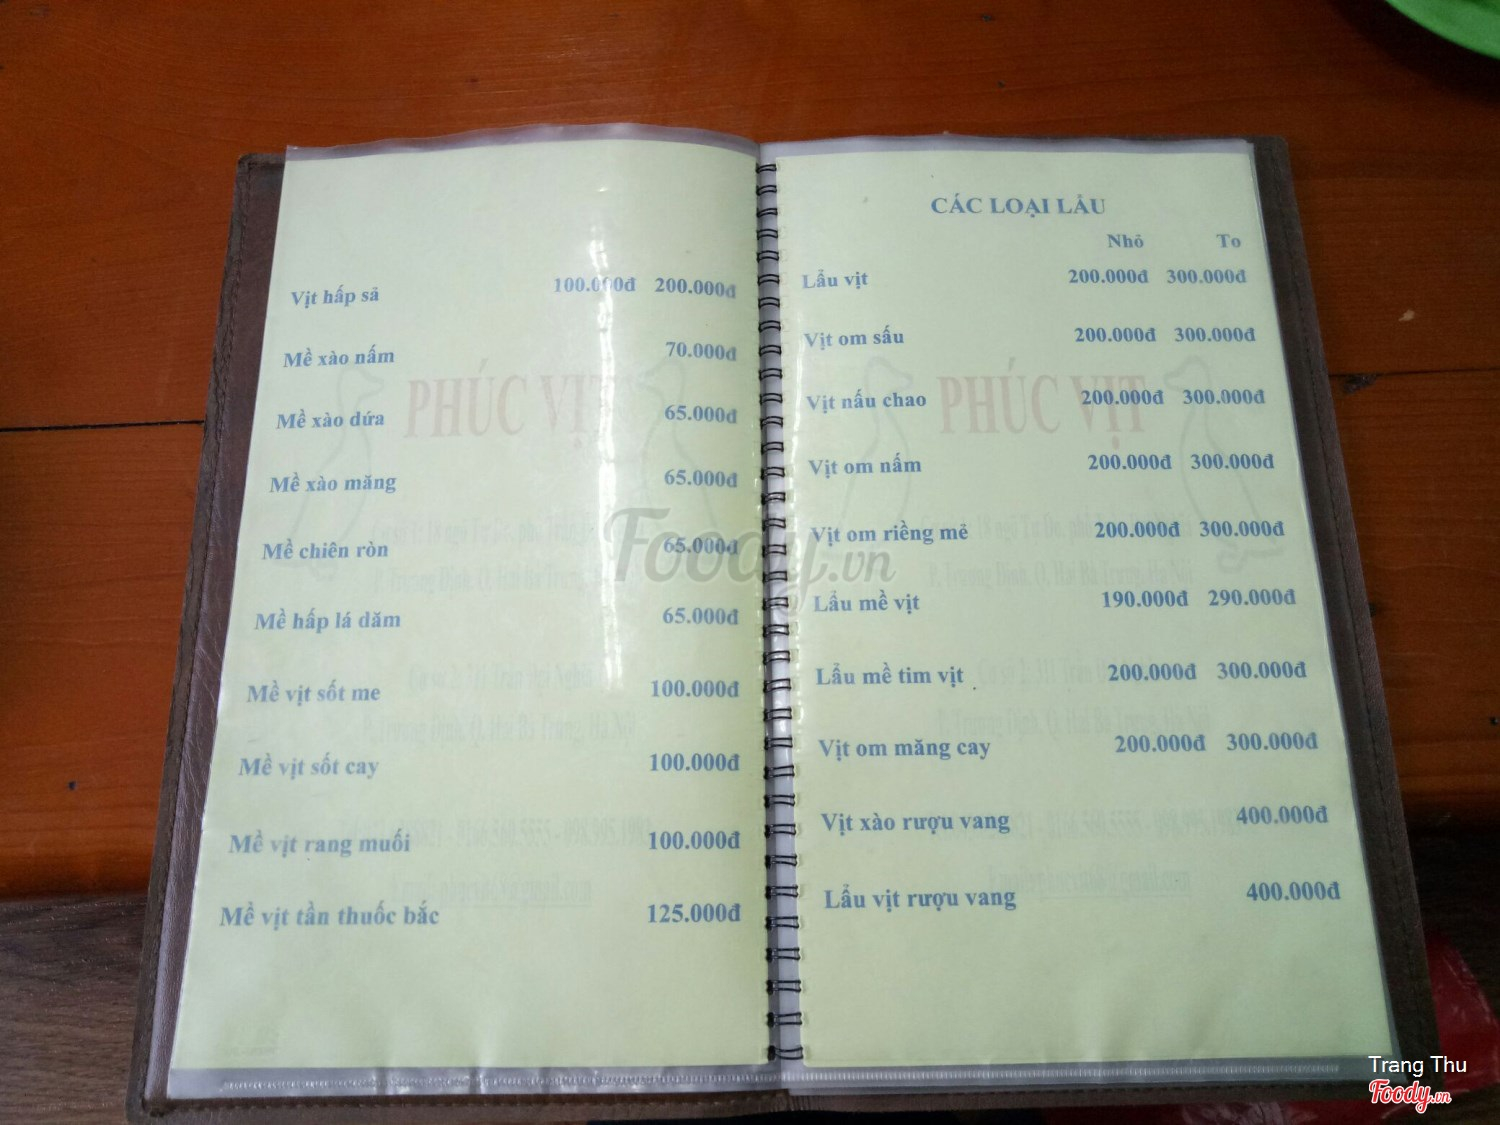 Vịt hấp sả 100.000đ 200.000đ
Mề xào nấm 70.000đ
PHÚC VỊT
Mề xào dứa 65.000đ
Mề xào măng 65.000đ
Mề chiên ròn 65.000đ
Mề hấp lá dăm 65.000đ
Mề vịt sốt me 100.000đ
Mề vịt sốt cay 100.000đ
Mề vịt rang muối 100.000đ
Mề vịt tần thuốc bắc 125.000đ
CÁC LOẠI LẨU
Nhỏ To
Lẩu vịt 200.000đ 300.000đ
Vịt om sấu 200.000đ 300.000đ
PHÚC VỊT
Vịt nấu chao 200.000đ 300.000đ
Vịt om nấm 200.000đ 300.000đ
Vịt om riềng mẻ 200.000đ 300.000đ
Lẩu mề vịt 190.000đ 290.000đ
Lẩu mề tim vịt 200.000đ 300.000đ
Vịt om măng cay 200.000đ 300.000đ
Vịt xào rượu vang 400.000đ
Lẩu vịt rượu vang 400.000đ
Foody.vn
Trang Thu
Foody.vn